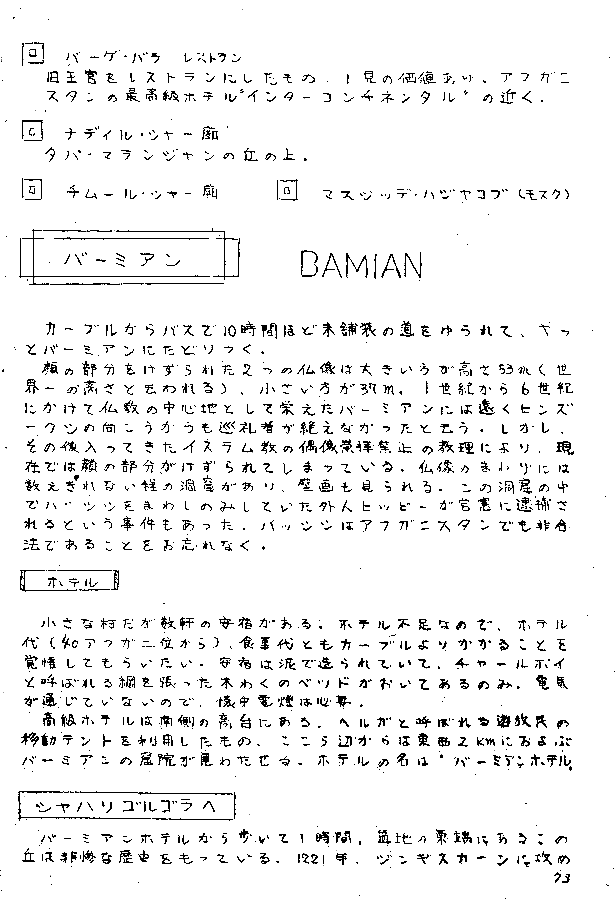 バーゲ・バラ レストラン
旧王宮をレストランにしたもの。1見の価値あり、アフガニ
スタンの最高級ホテル"インターコンチネンタル"の近く。
ナディル・シャー廟
タパ・マランジャンの丘の上。
チムール・シャー廟 マスジッデ・ハジヤコブ(モスク)
バーミアン BAMIAN
カーブルからバスで10時間ほど未舗装の道をゆられて、やっ
とバーミアンにたどりつく。
顔の部分をけずられた2つの仏像は大きいうが高さ53m(世
界一の高さと云われる)、小さい方が37m。1世紀から6世紀
にかけて仏教の中心地として栄えたバーミアンには遠くヒンズ
ークシの向こうからも巡礼者が絶えなかったと云う。しかし、
その後入ってきたイスラム教の偶像崇拝禁止の教理により、現
在では顔の部分がけずられてしまっている。仏像のまわりには
数えきれない程の洞窟があり、壁画も見られる。この洞窟の中
でハッシシをまわしのみしていた外人ヒッピーが官憲に逮捕さ
れるという事件もあった。ハッシシはアフガニスタンでも非合
法であることをお忘れなく。
ホテル
小さな村だが数軒の安宿がある。ホテル不足なので、ホテル
代(40アフガニ位から)、食事代ともカーブルよりかかることを
覚悟してもらいたい。安宿は泥で造られていて、チャールポイ
と呼ばれる網を張った木わくのベッドがおいてあるのみ。電気
が通じていないので、懐中電燈は必要。
高級ホテルは南側の高台にある。ヘルガと呼ばれる遊牧民の
移動テントを利用したもの。ここら辺からは東西2kmにおよぶ
バーミアンの石院が見わたせる。ホテルの名は"バーミアンホテル。
シャハリゴルゴラへ
バーミアンホテルから歩いて1時間。盆地の東端にあるこの
丘は悲惨な歴史をもっている。1221年、ジンギスカーンに攻め
73